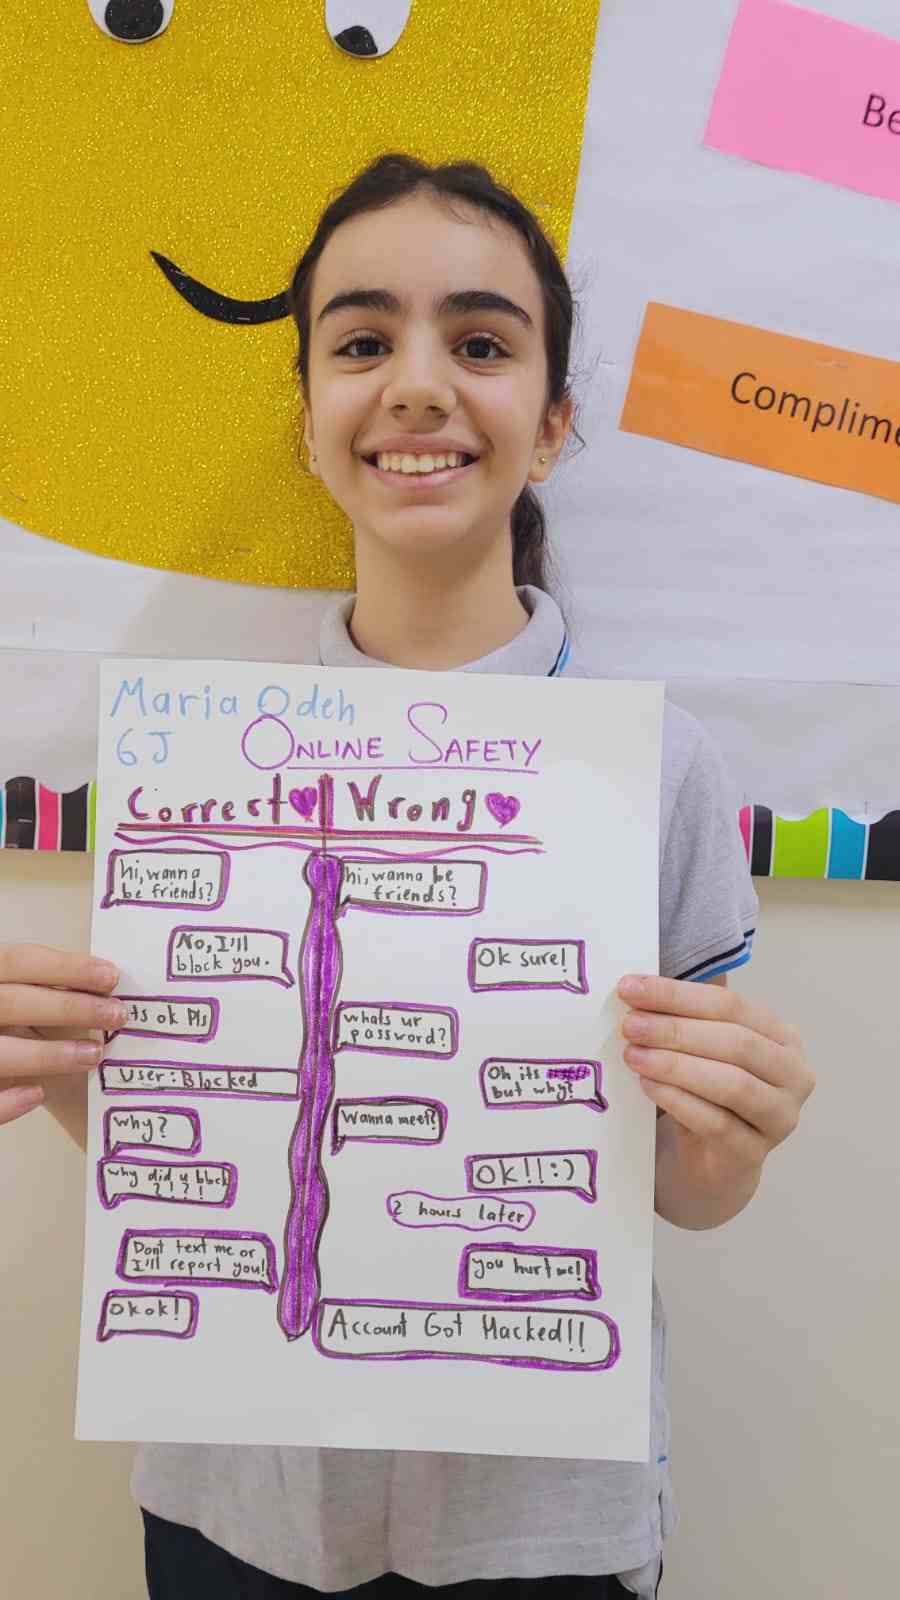 Be
Complime
Maria Odeh
6J
ONLINE SAFETY
Correct
Wrong
hi, wanna
be friends?
No, I'll
block you.
ts ok Pls
User: Blocked
why?
why did u block
?!?!
Dont text me or
I'll report you!
okok!
hi, wanna be
friends?
Ok sure!
whats ur
password?
Oh its
but why?
Wanna meet?
OK!!:)
2 hours later
you hurt me!
Account Got Hacked!!